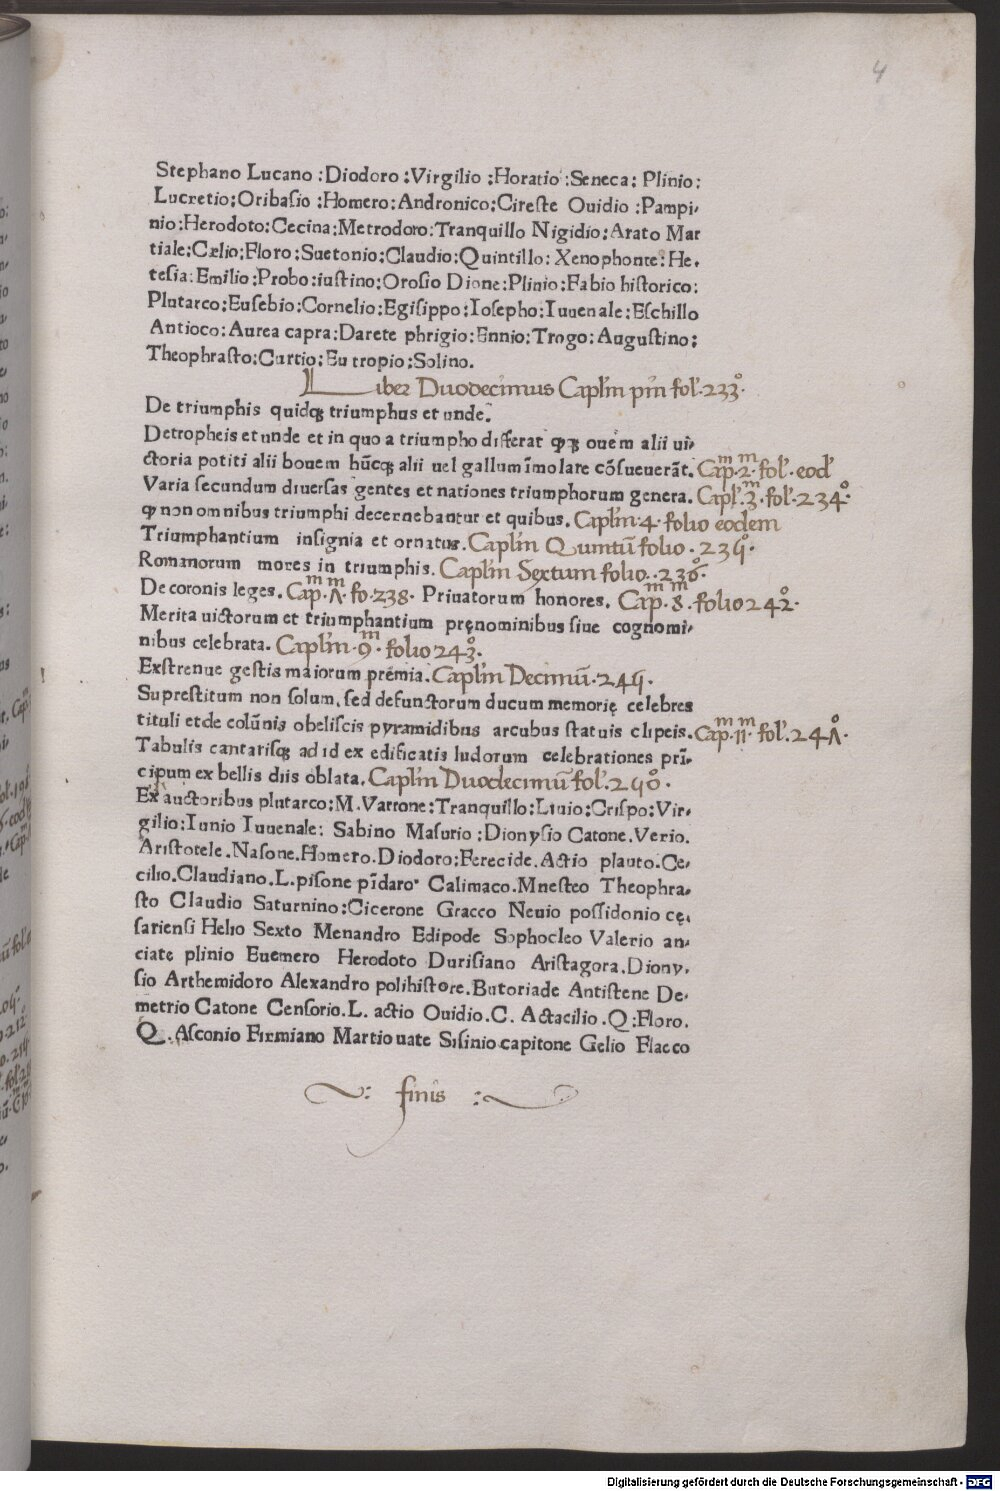 4
Stephano Lucano :Diodoro :Virgilio :Horatio :Seneca: Plinio:
Lucretio:Oribasio :Homero:Andronico:Cireste Ouidio :Pampi-
nio:Herodoto:Cecina:Metrodoro:Tranquillo Nigidio:Arato Mar
tiale:Cælio:Floro:Suetonio:Claudio:Quintillo: Xenophonte: He-
tesia: Emilio:Probo:iustino:Orosio Dione:Plinio:Fabio historico:
Plutarco:Eusebio:Cornelio:Egisippo:Iosepho:Iuuenale:Eschillo
Antioco:Aurea capra:Darete phrigio:Ennio:Trogo:Augustino:
Theophrasto:Curtio:Eutropio:Solino.
Liber Duodecimus Caplm pm fol. 233°.
De triumphis quidq; triumphus et unde.
Detropheis et unde et in quo a triumpho differat ꝙq; ouem alii ui-
ctoria potiti alii bouem hūcq; alii uel gallum īmolare cōsueuerāt. Capm.2m.fol.eod
Varia secundum diuersas gentes et nationes triumphorum genera. Capl.3m.fol.234°.
ꝙ non omnibus triumphi decernebantur et quibus. Caplm.4. folio eodem
Triumphantium insignia et ornatus. Caplm Quintū folio . 235°.
Romanorum mores in triumphis. Caplm Sextum folio..236°.
De coronis leges. Capm.Λm.fo.238. Priuatorum honores. Capm.8m.folio 242°.
Merita uictorum et triumphantium pręnominibus siue cognomi-
nibus celebrata. Caplm.9m. folio 243°.
Exstrenue gestis maiorum premia. Caplm Decimū.245.
Suprestitum non solum, sed defunctorum ducum memorię celebres
tituli et de colūnis obeliscis pyramidibus arcubus statuis clipeis. Capm.11m. fol.24Λ°.
Tabulis cantarisq; ad id ex edificatis ludorum celebrationes prī-
cipum ex bellis diis oblata. Caplm Duodecimū fol.250°.
Ex auctoribus plutarco:M.Varrone:Tranquillo:Liuio:Crispo:Vir-
gilio:Iunio Iuuenale: Sabino Masurio :Dionysio Catone.Verio.
Aristotele.Nasone.Homero.Diodoro:Ferecide.Actio plauto.Ce-
cilio.Claudiano.L.pisone pīdaro. Calimaco.Mnesteo Theophra-
sto Claudio Saturnino:Cicerone Gracco Neuio possidonio cę-
sariensi Helio Sexto Menandro Edipode Sophocleo Valerio an-
ciate plinio Euemero Herodoto Durisiano Aristagora.Diony-
sio Arthemidoro Alexandro polihistore.Butoriade Antistene De-
metrio Catone Censorio.L. actio Ouidio.C. Actacilio.Q:Floro.
Q. Asconio Firmiano Martio uate Sisinio capitone Gelio Flacco
finis
Digitalisierung gefördert durch die Deutsche Forschungsgemeinschaft - DFG